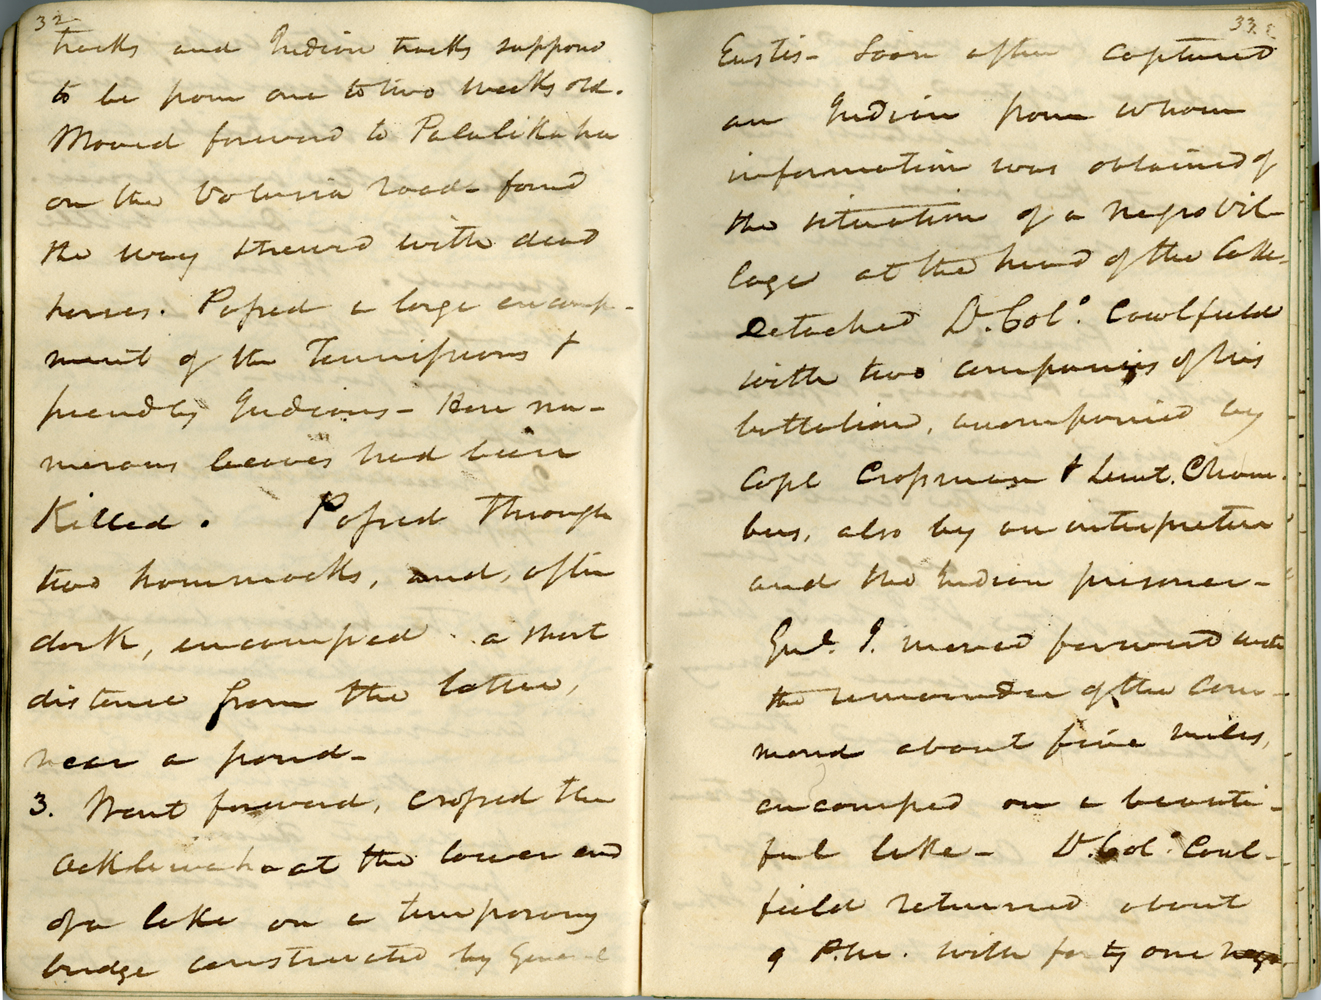 32
tracks and Indian tracks suppose
to be from one to two weeks old.
Moved forward to Palalikaha
on the Volusia road - found
the way strewed with dead
horses. Passed a large encamp-
ment of the Tennisseans &
friendly Indians - Here nu-
merous beeves had been
Killed. Passed through
two hommocks, and, after
dark, encamped a short
distance from the latter,
near a pond -
3. Went forward, crossed the
Ocklewaha at the lower end
of a lake on a temporary
bridge constructed by General
33.
Eustis - Soon after captured
an Indian from whom
information was obtained of
the situation of a Negro Vil-
lage at the head of the Lake.
Detached Lt. Colo. Caulfield
with two companies of his
battalion, accompanied by
Capt Crossman & Lieut. Cham-
bers, also by an interpreter
and the Indian prisoner -
Genl. J. moved forward with
the remainder of the com-
mand about five miles,
encamped on a beauti-
ful lake - Lt. Colo. Caul-
field returned about
9 P.M. with forty one